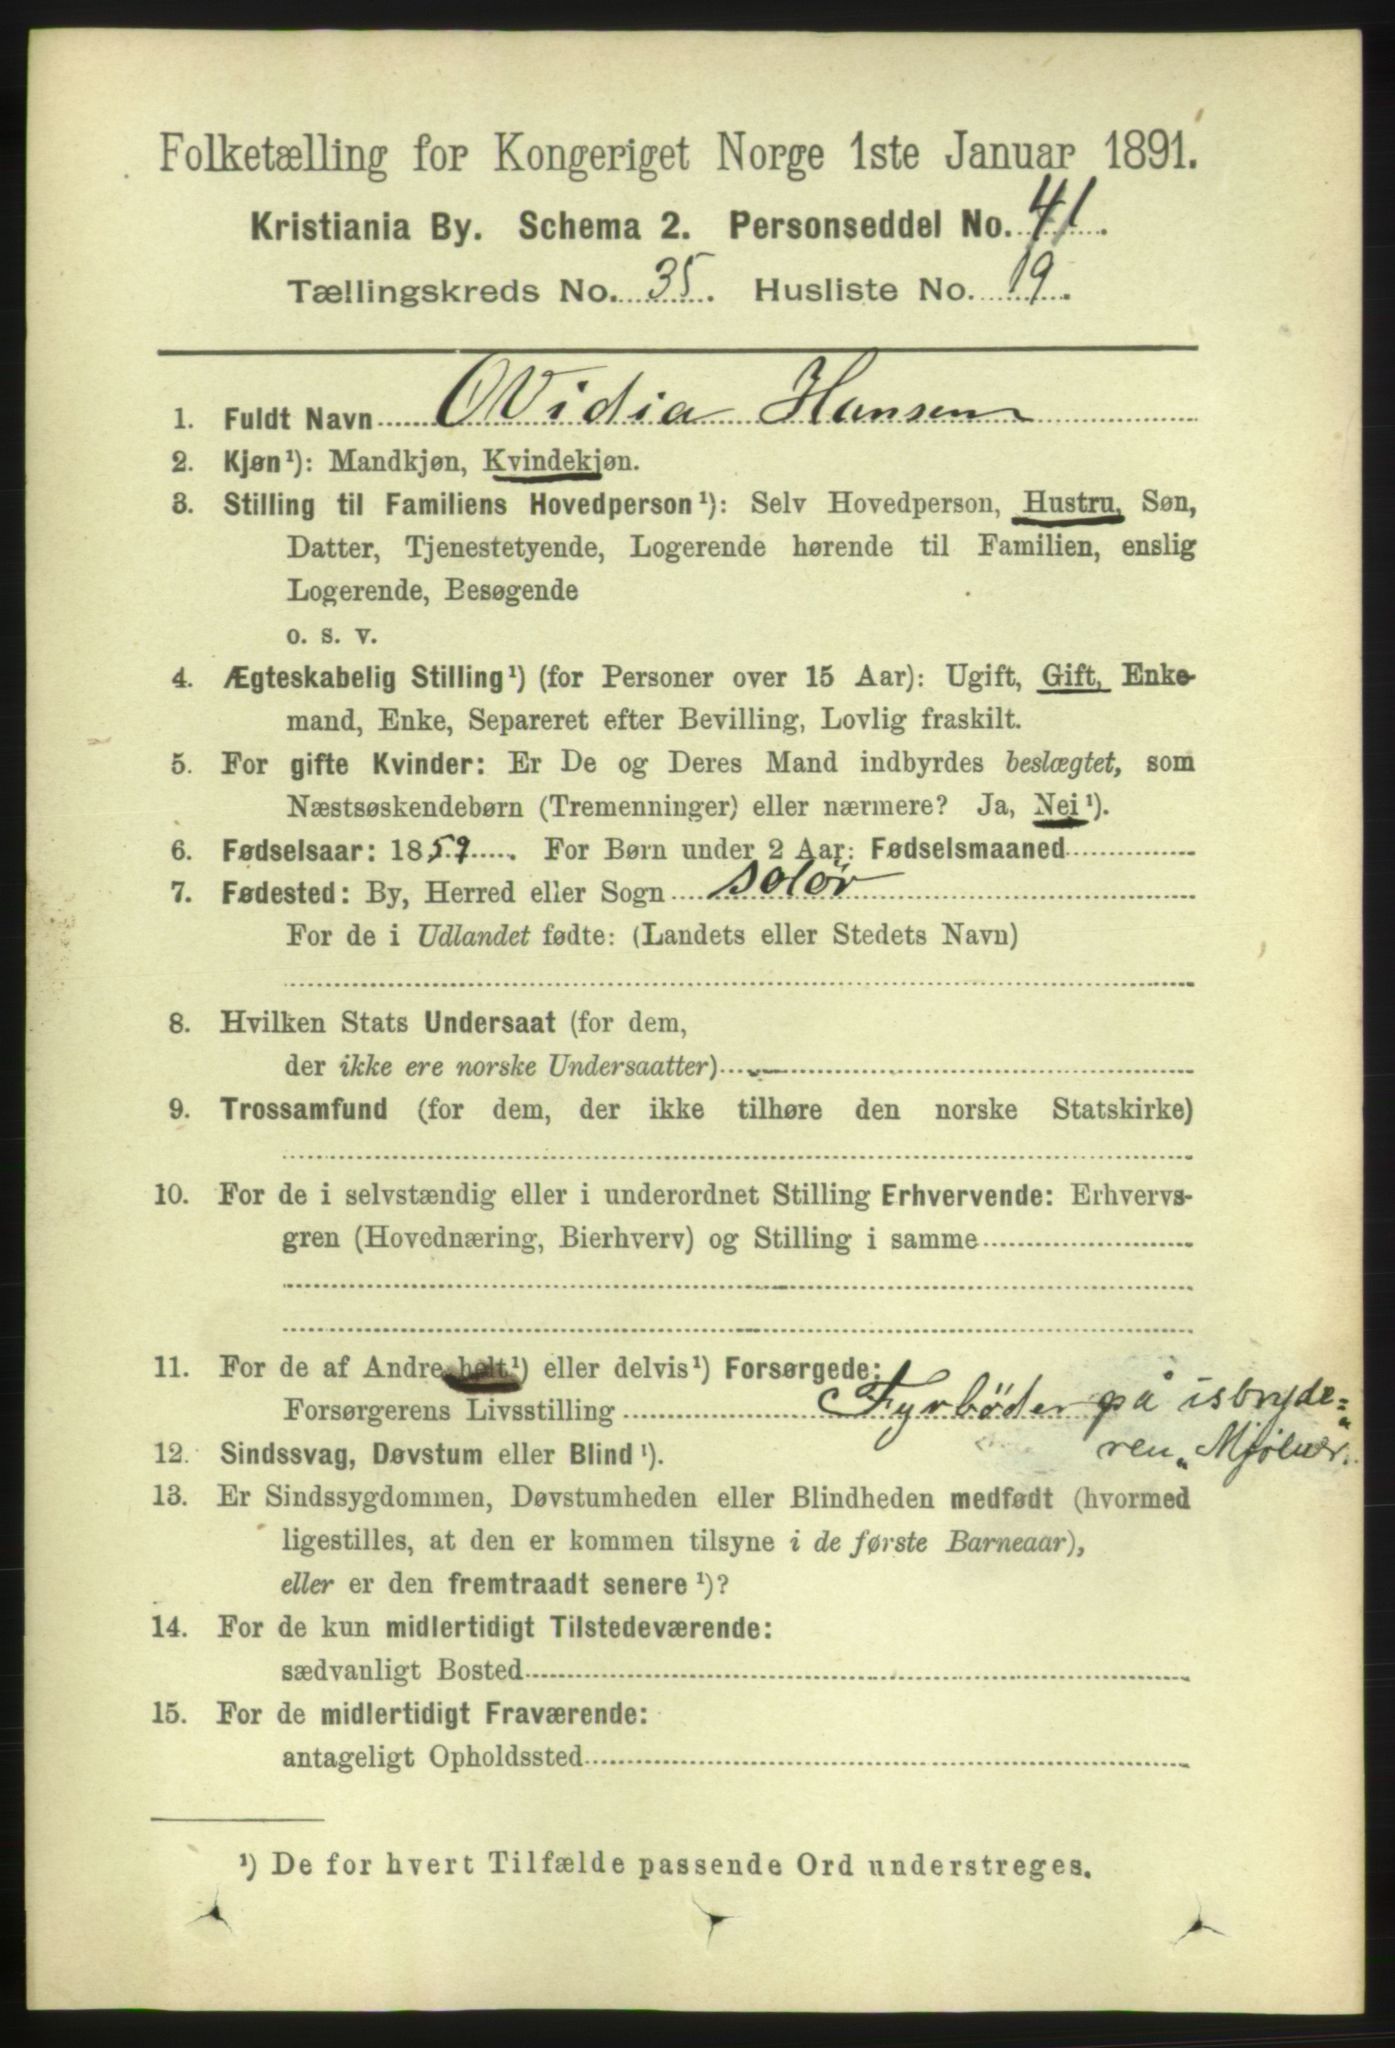 Folketælling for Kongeriget Norge 1ste Januar 1891.
Kristiania By. Schema 2. Personseddel No. 41.
Tællingskreds No. 35. Husliste No. 19.
1. Fuldt Navn OVidia Hansen
2. Kjøn¹): Mandkjøn, Kvindekjøn.
3. Stilling til Familiens Hovedperson¹): Selv Hovedperson, Hustru, Søn,
Datter, Tjenestetyende, Logerende hørende til Familien, enslig
Logerende, Besøgende
o. s. v.
4. Ægteskabelig Stilling¹) (for Personer over 15 Aar): Ugift, Gift, Enke-
mand, Enke, Separeret efter Bevilling, Lovlig fraskilt.
5. For gifte Kvinder: Er De og Deres Mand indbyrdes beslægtet, som
Næstsøskendebørn (Tremenninger) eller nærmere? Ja, Nei¹).
6. Fødselsaar: 1859. For Børn under 2 Aar: Fødselsmaaned
7. Fødested: By, Herred eller Sogn solør
For de i Udlandet fødte: (Landets eller Stedets Navn)
8. Hvilken Stats Undersaat (for dem,
der ikke ere norske Undersaatter)
9. Trossamfund (for dem, der ikke tilhøre den norske Statskirke)
10. For de i selvstændig eller i underordnet Stilling Erhvervende: Erhvervs-
gren (Hovednæring, Bierhverv) og Stilling i samme
11. For de af Andre helt¹) eller delvis¹) Forsørgede:
Forsørgerens Livsstilling Fyrböder på isbryde=
ren „Mjølner"
12. Sindssvag, Døvstum eller Blind¹).
13. Er Sindssygdommen, Døvstumheden eller Blindheden medfødt (hvormed
ligestilles, at den er kommen tilsyne i de første Barneaar),
eller er den fremtraadt senere¹)?
14. For de kun midlertidigt Tilstedeværende:
sædvanligt Bosted
15. For de midlertidigt Fraværende:
antageligt Opholdssted
¹) De for hvert Tilfælde passende Ord understreges.